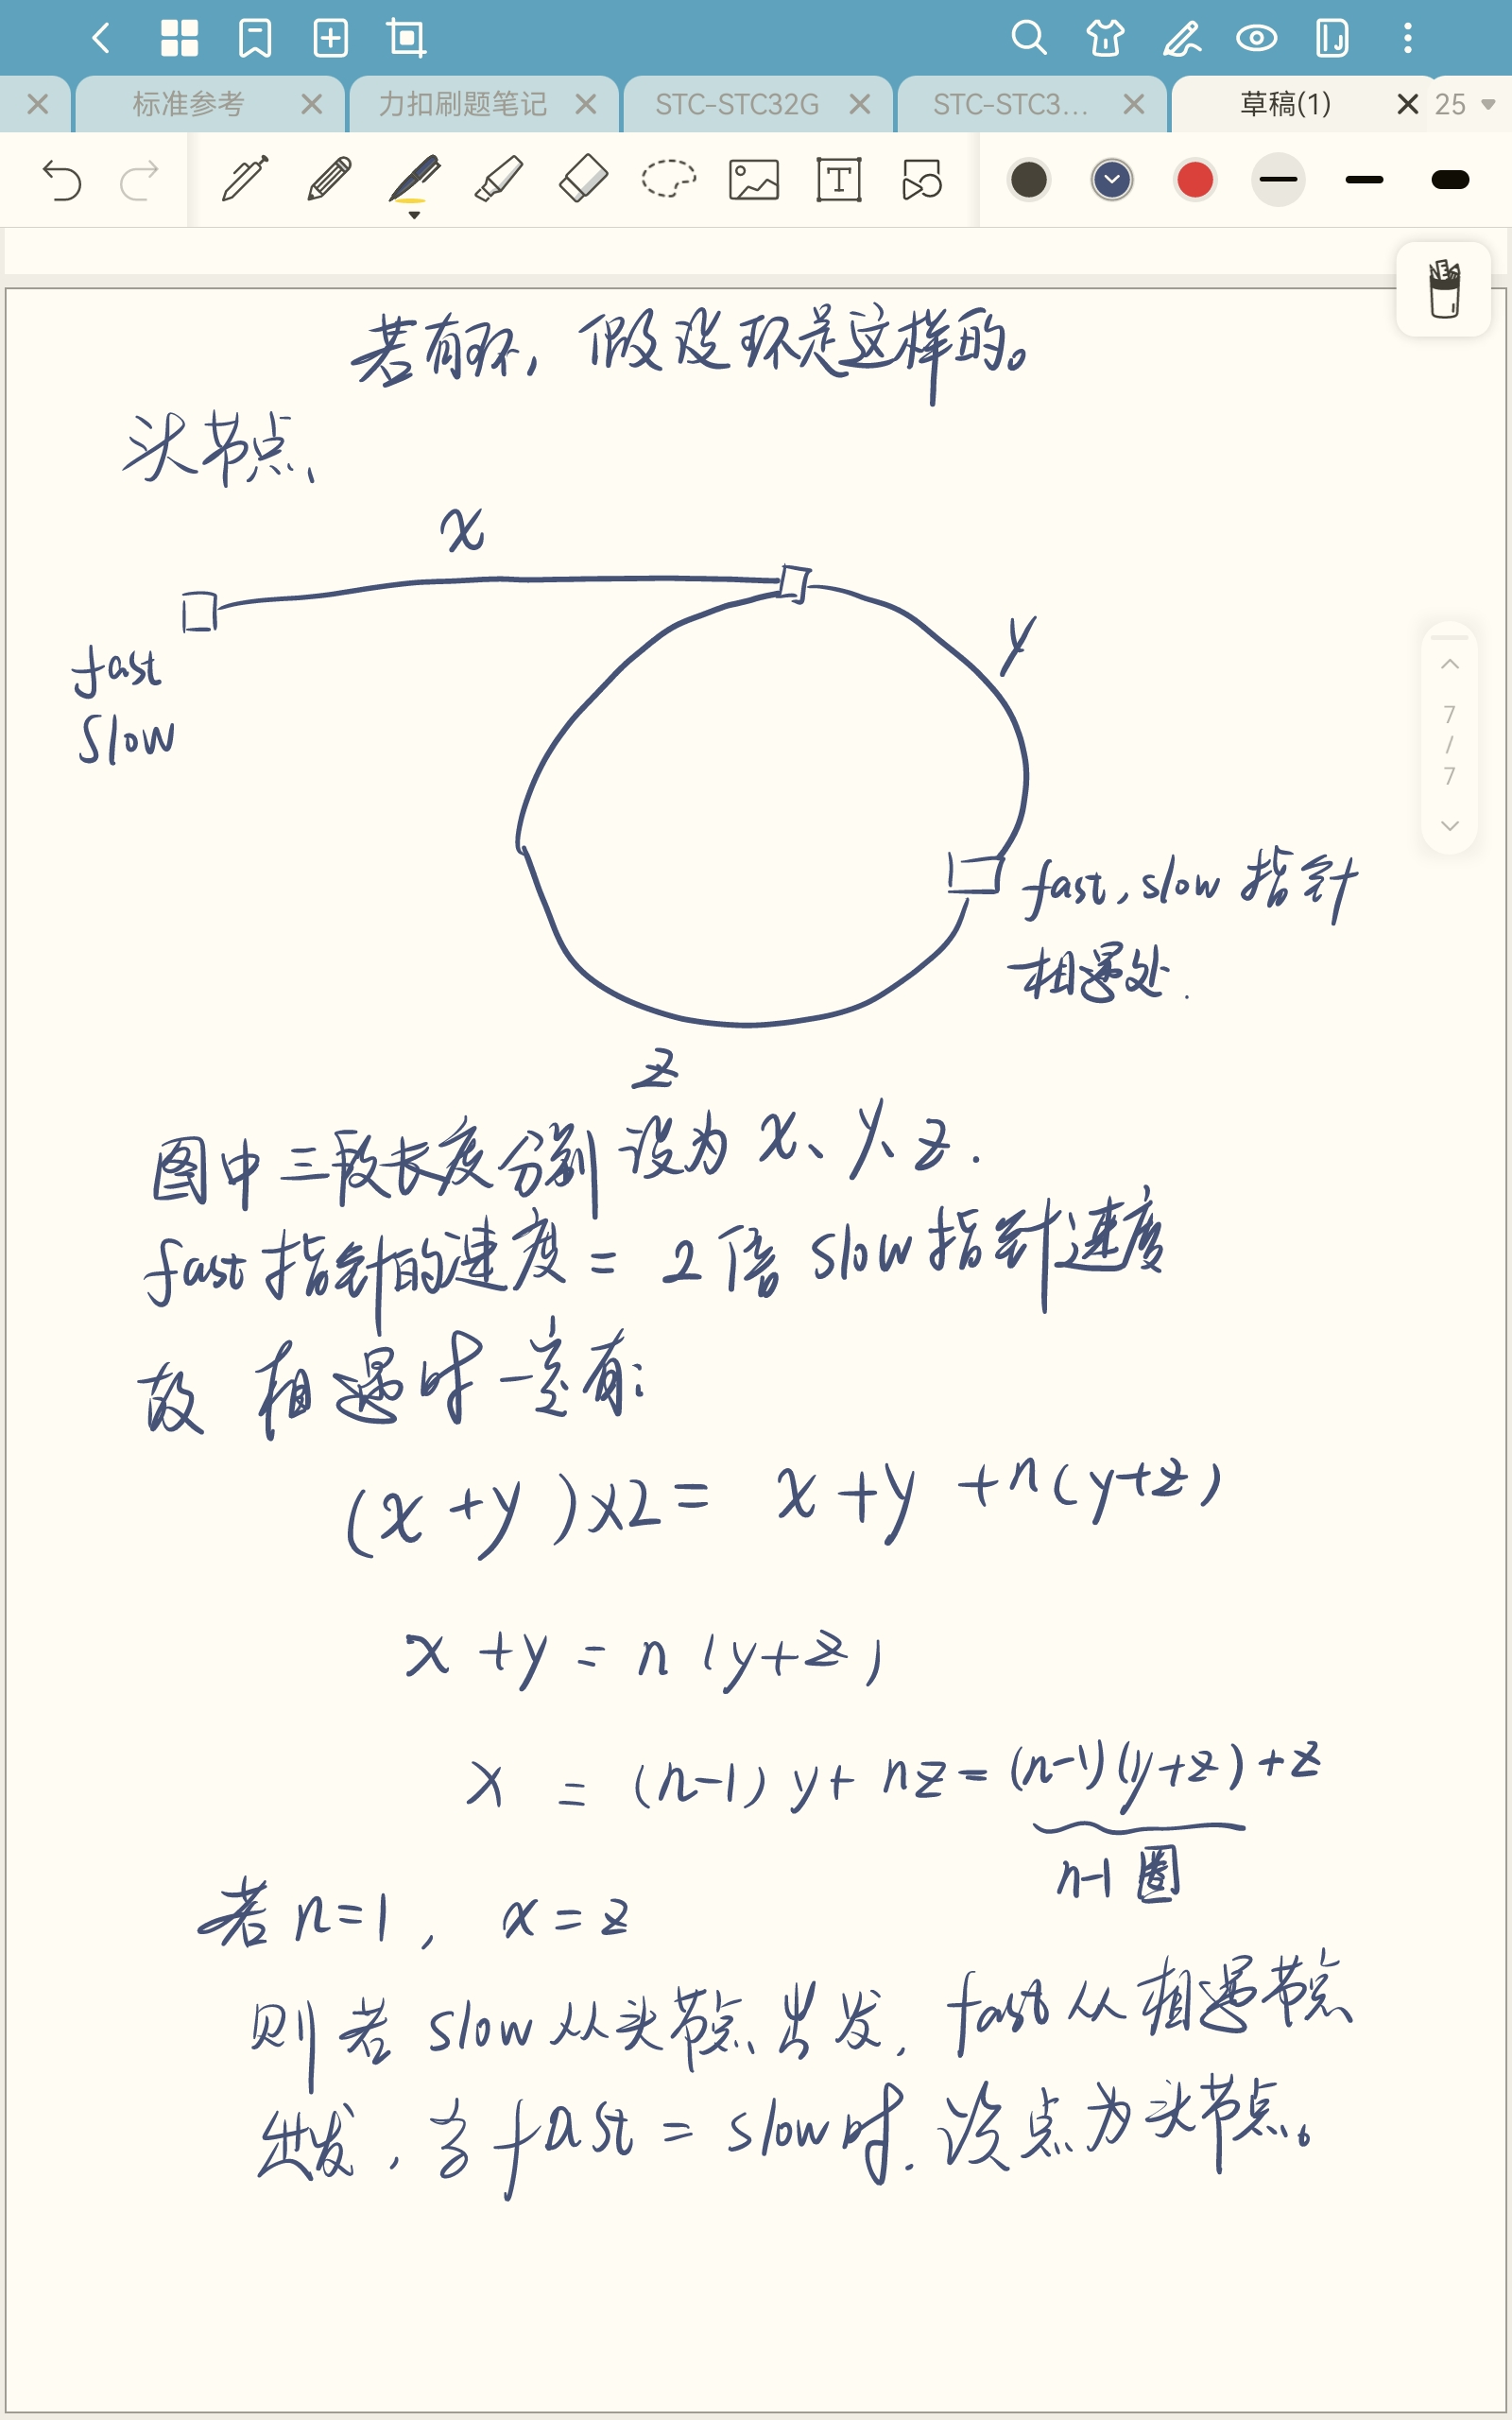 标准参考
力扣刷题笔记
STC-STC32G
STC-STC3...
草稿(1)
25
若有环，假设环是这样的。
头节点、
x
fast
slow
y
7
/
7
fast, slow 指针
相遇处.
z
图中三段长度分别设为 x、y、z.
fast指针的速度 = 2倍 slow指针速度
故 相遇时一定有:
(x+y)×2 = x+y+n(y+z)
x+y = n(y+z)
x = (n-1)y + nz = (n-1)(y+z)+z
n-1圈
若 n=1, x=z
则若 slow从头节点出发, fast从相遇节点
出发, 当fast = slow时. 该点为头节点。